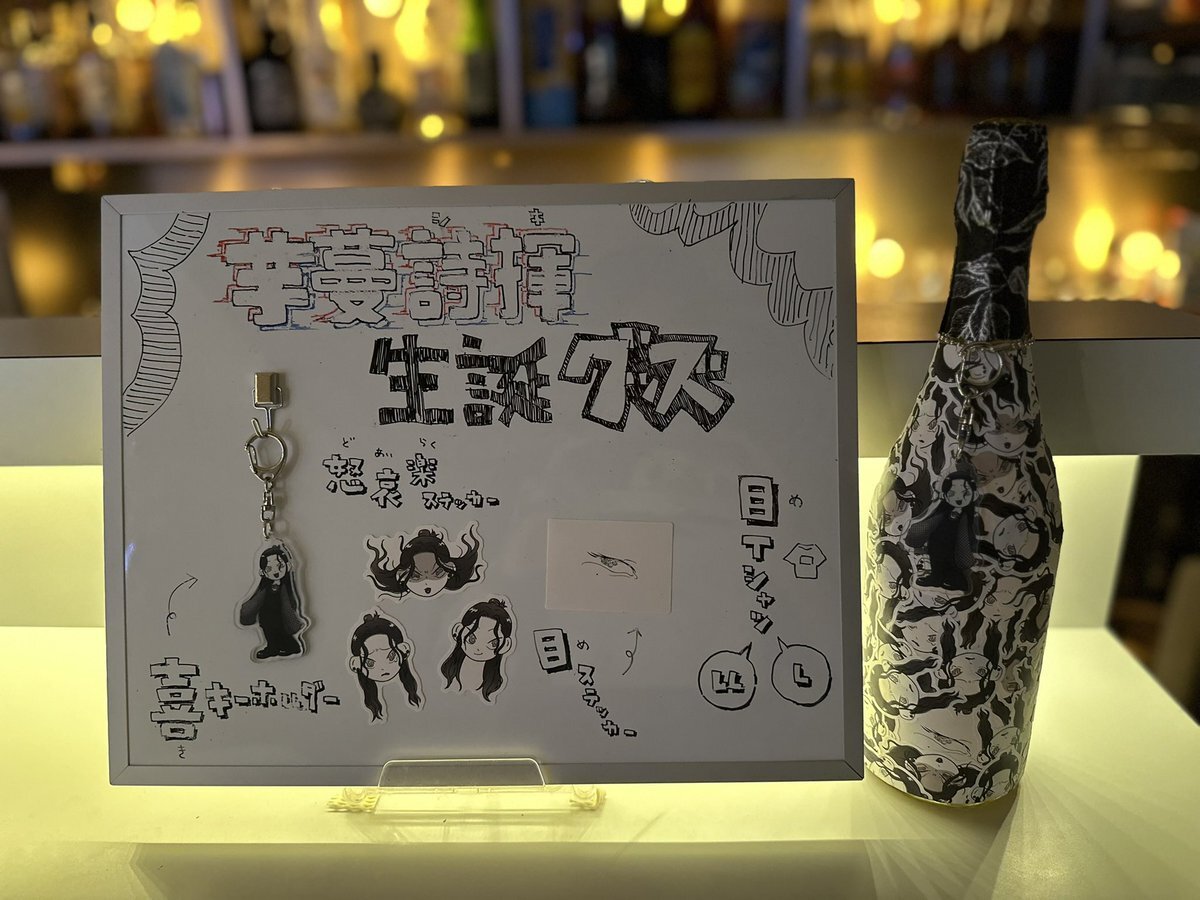 シ キ
芋蔓詩揮
生誕グッズ
ど あい らく
怒哀楽ステッカー
目Tシャツ
め
LL
L
目ステッカー
め
喜キーホルダー
き